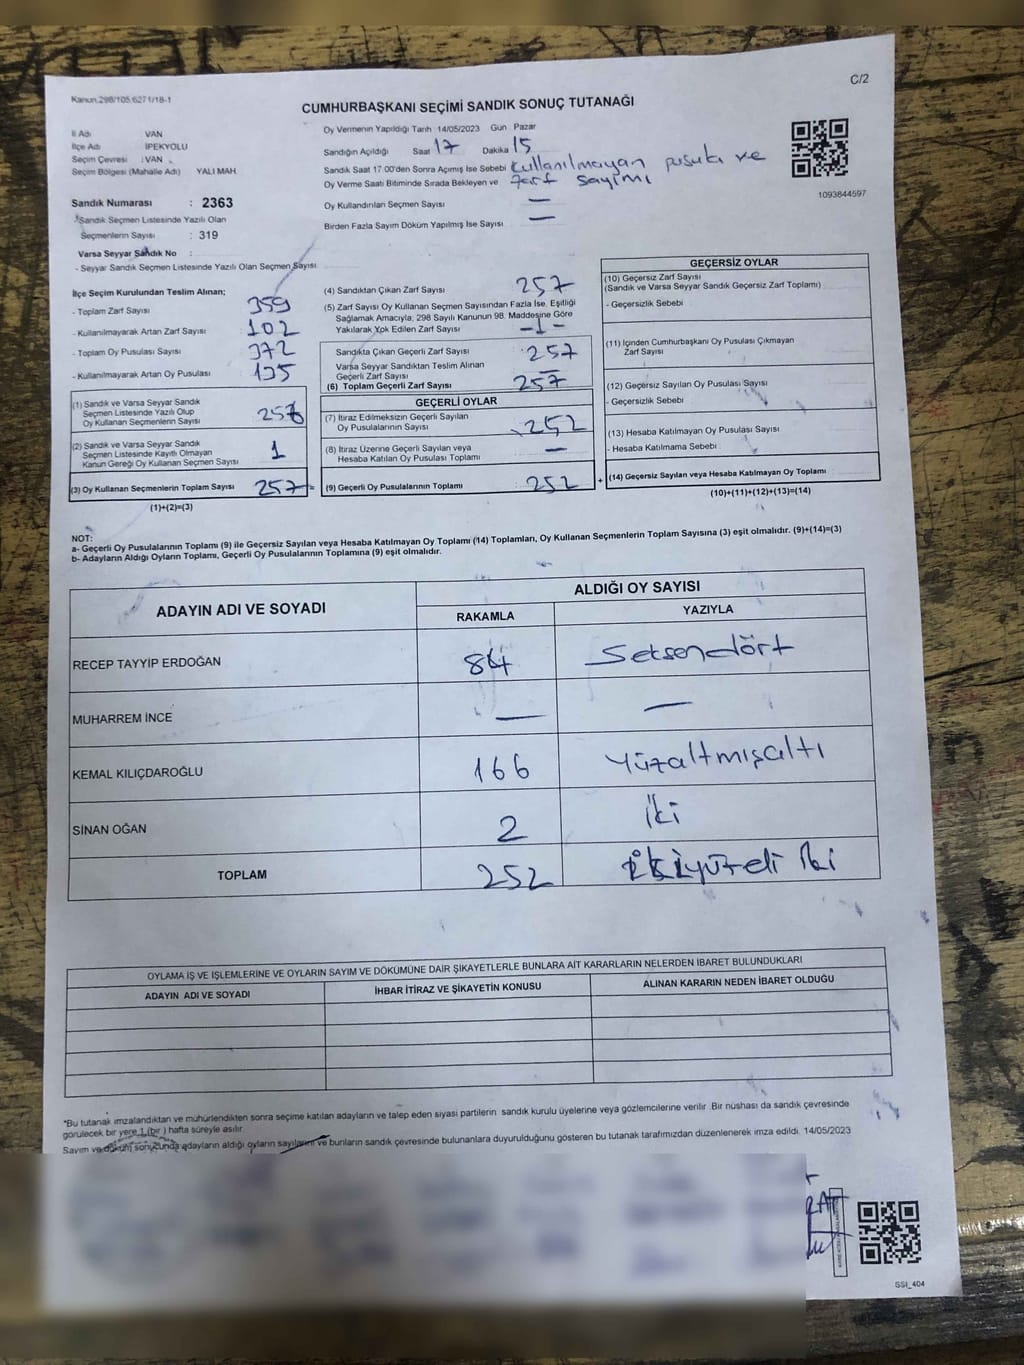 C/2
Kanun.298/105.6271/18-1
CUMHURBAŞKANI SEÇİMİ SANDIK SONUÇ TUTANAĞI
İl Adı VAN
İlçe Adı İPEKYOLU
Seçim Çevresi : VAN
Seçim Bölgesi (Mahalle Adı) YALI MAH.
Sandık Numarası : 2363
Sandık Seçmen Listesinde Yazılı Olan
Seçmenlerin Sayısı : 319
Varsa Seyyar Sandık No :
- Seyyar Sandık Seçmen Listesinde Yazılı Olan Seçmen Sayısı
Oy Vermenin Yapıldığı Tarih 14/05/2023 Gün Pazar
Sandığın Açıldığı Saat 17 Dakika 15
Sandık Saat 17:00'den Sonra Açımış İse Sebebi Kullanılmayan pusula ve
Oy Verme Saati Bitiminde Sırada Bekleyen ve zarf sayımı
Oy Kullandırılan Seçmen Sayısı —
Birden Fazla Sayım Döküm Yapılmış İse Sayısı —
1093844597
İlçe Seçim Kurulundan Teslim Alınan;
- Toplam Zarf Sayısı 359
- Kullanılmayarak Artan Zarf Sayısı 102
- Toplam Oy Pusulası Sayısı 372
- Kullanılmayarak Artan Oy Pusulası
(1) Sandık ve Varsa Seyyar Sandık
Seçmen Listesinde Yazılı Olup
Oy Kullanan Seçmenlerin Sayısı 256
(2) Sandık ve Varsa Seyyar Sandık
Seçmen Listesinde Kayıtlı Olmayan
Kanun Gereği Oy Kullanan Seçmen Sayısı 1
(3) Oy Kullanan Seçmenlerin Toplam Sayısı 257
(1)+(2)=(3)
(4) Sandıktan Çıkan Zarf Sayısı 257
(5) Zarf Sayısı Oy Kullanan Seçmen Sayısından Fazla İse, Eşitliği
Sağlamak Amacıyla; 298 Sayılı Kanunun 98. Maddesine Göre
Yakılarak Yok Edilen Zarf Sayısı
Sandıkta Çıkan Geçerli Zarf Sayısı 257
Varsa Seyyar Sandıktan Teslim Alınan
Geçerli Zarf Sayısı —
(6) Toplam Geçerli Zarf Sayısı 257
GEÇERLİ OYLAR
(7) İtiraz Edilmeksizin Geçerli Sayılan
Oy Pusulalarının Sayısı 252
(8) İtiraz Üzerine Geçerli Sayılan veya
Hesaba Katılan Oy Pusulası Toplamı —
(9) Geçerli Oy Pusulalarının Toplamı 252
GEÇERSİZ OYLAR
(10) Geçersiz Zarf Sayısı
(Sandık ve Varsa Seyyar Sandık Geçersiz Zarf Toplamı)
- Geçersizlik Sebebi
(11) İçinden Cumhurbaşkanı Oy Pusulası Çıkmayan
Zarf Sayısı
(12) Geçersiz Sayılan Oy Pusulası Sayısı
- Geçersizlik Sebebi :
(13) Hesaba Katılmayan Oy Pusulası Sayısı
- Hesaba Katılmama Sebebi :
+ (14) Geçersiz Sayılan veya Hesaba Katılmayan Oy Toplamı
(10)+(11)+(12)+(13)=(14)
NOT:
a- Geçerli Oy Pusulalarının Toplamı (9) ile Geçersiz Sayılan veya Hesaba Katılmayan Oy Toplamı (14) Toplamları, Oy Kullanan Seçmenlerin Toplam Sayısına (3) eşit olmalıdır. (9)+(14)=(3)
b- Adayların Aldığı Oyların Toplamı, Geçerli Oy Pusulalarının Toplamına (9) eşit olmalıdır.
ADAYIN ADI VE SOYADI
ALDIĞI OY SAYISI
RAKAMLA YAZIYLA
RECEP TAYYİP ERDOĞAN 84 Seksendört
MUHARREM İNCE — —
KEMAL KILIÇDAROĞLU 166 Yüzaltmışaltı
SİNAN OĞAN 2 İki
TOPLAM 252 ikiyüzeli iki
OYLAMA İŞ VE İŞLEMLERİNE VE OYLARIN SAYIM VE DÖKÜMÜNE DAİR ŞİKAYETLERLE BUNLARA AİT KARARLARIN NELERDEN İBARET BULUNDUKLARI
ADAYIN ADI VE SOYADI İHBAR İTİRAZ VE ŞİKAYETİN KONUSU ALINAN KARARIN NEDEN İBARET OLDUĞU
*Bu tutanak imzalandıktan ve mühürlendikten sonra seçime katılan adayların ve talep eden siyasi partilerin sandık kurulu üyelerine veya gözlemcilerine verilir. Bir nüshası da sandık çevresinde
görülecek bir yere 1 (bir ) hafta süreyle asılır.
Sayım ve döküm sonucunda adayların aldığı oyların sayılarını ve bunların sandık çevresinde bulunanlara duyurulduğunu gösteren bu tutanak tarafımızdan düzenlenerek imza edildi. 14/05/2023
SSİ_404